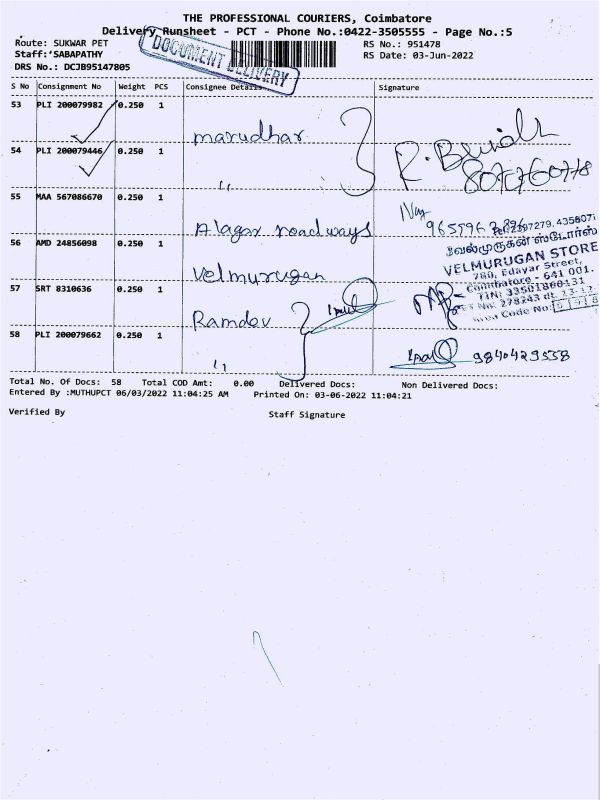 THE PROFESSIONAL COURIERS, Coimbatore
Delivery Runsheet - PCT - Phone No.:0422-3505555 - Page No.:5
Route: SUKWAR PET
RS No.: 951478
Staff: SABAPATHY
RS Date: 03-Jun-2022
DRS No.: DCJB95147805
DOCUMENT DELIVERY
S No Consignment No Weight PCS Consignee Details Signature
53 PLI 200079982 0.250 1 marudhar
54 PLI 200079446 0.250 1 "
55 MAA 567086670 0.250 1 Alagar roadways
56 AMD 24856098 0.250 1 Velmurugan
வேல்முருகன் ஸ்டோர்ஸ்
VELMURUGAN STORE
780, Edayar Street,
Coimbatore - 641 001.
TIN: 33501860131
Area Code No:
57 SRT 8310636 0.250 1 Ramdev
58 PLI 200079662 0.250 1 " 9840429558
Total No. Of Docs: 58 Total COD Amt: 0.00 Delivered Docs: Non Delivered Docs:
Entered By :MUTHUPCT 06/03/2022 11:04:25 AM Printed On: 03-06-2022 11:04:21
Verified By Staff Signature